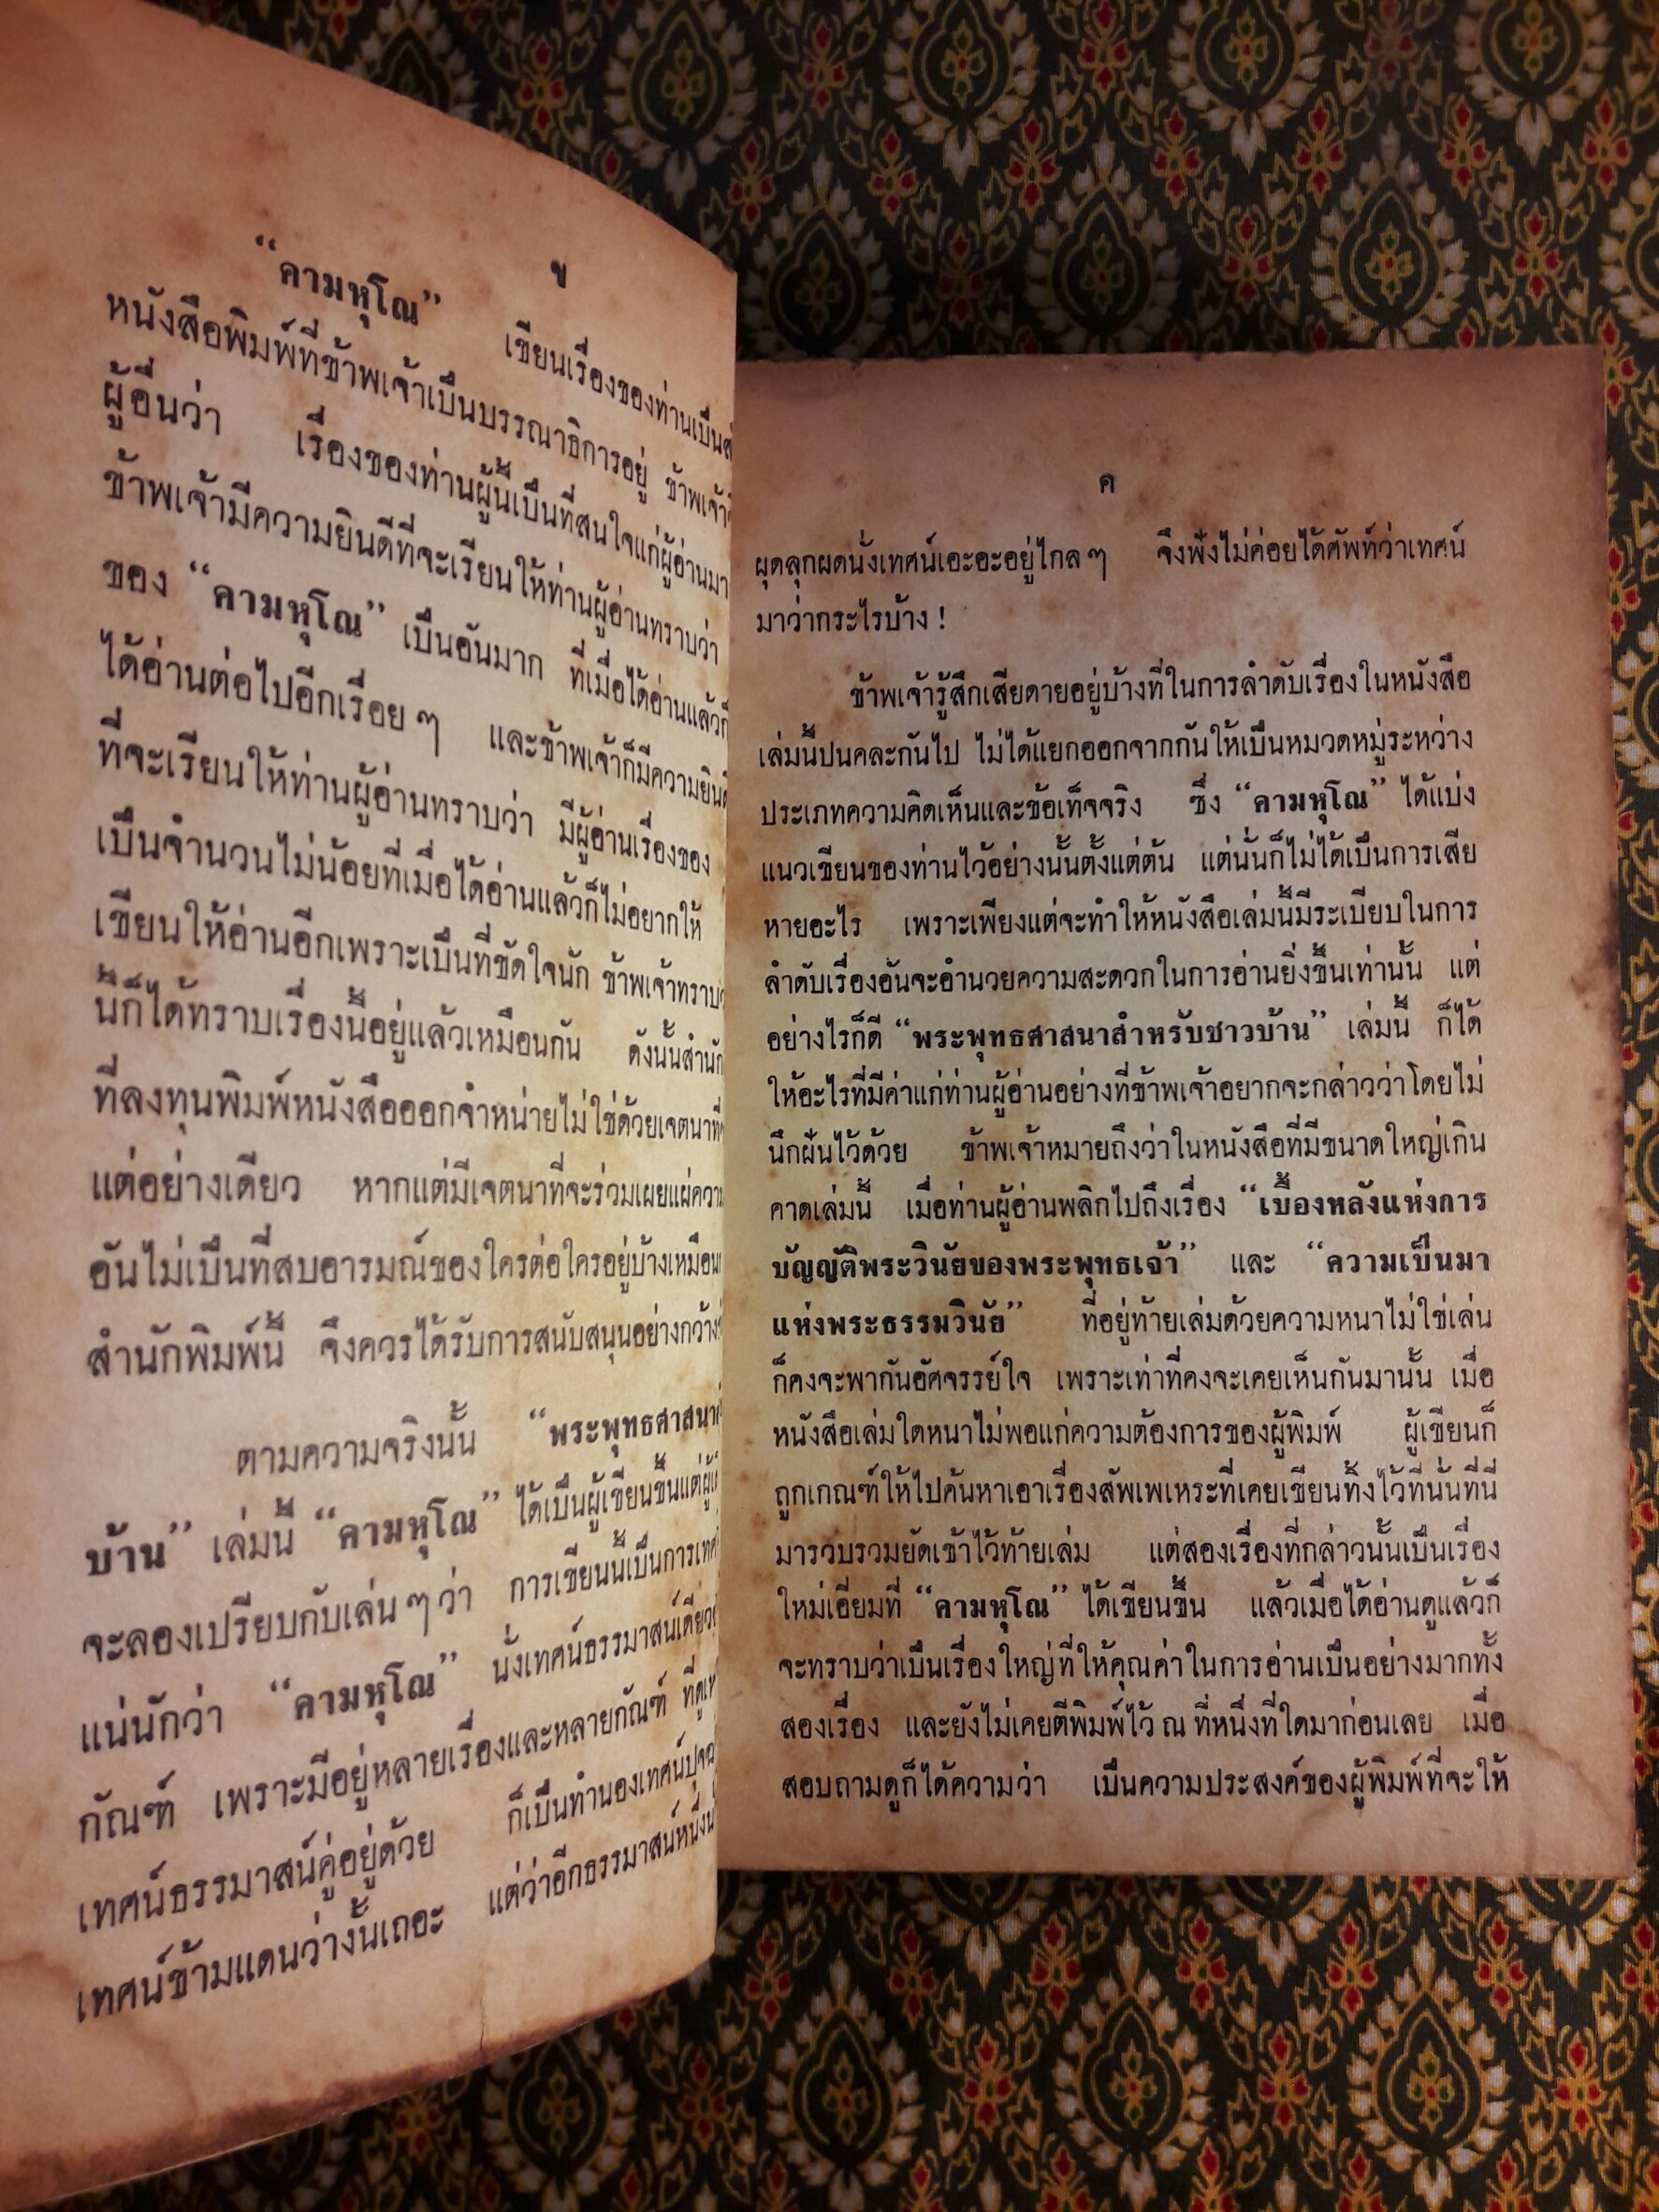 ข
“คามหุโณ” เขียนเรื่องของท่านเป็น
หนังสือพิมพ์ที่ข้าพเจ้าเป็นบรรณาธิการอยู่ ข้าพเจ้า
ผู้อื่นว่า เรื่องของท่านผู้นี้เป็นที่สนใจแก่ผู้อ่านมา
ข้าพเจ้ามีความยินดีที่จะเรียนให้ท่านผู้อ่านทราบว่า
ของ “คามหุโณ” เป็นอันมาก ที่เมื่อได้อ่านแล้วก็
ได้อ่านต่อไปอีกเรื่อย ๆ และข้าพเจ้าก็มีความยินดี
ที่จะเรียนให้ท่านผู้อ่านทราบว่า มีผู้อ่านเรื่องของ
เป็นจำนวนไม่น้อยที่เมื่อได้อ่านแล้วก็ไม่อยากให้
เขียนให้อ่านอีกเพราะเป็นที่ขัดใจนัก ข้าพเจ้าทราบ
นี้ก็ได้ทราบเรื่องนี้อยู่แล้วเหมือนกัน ดังนั้นสำนัก
ที่ลงทุนพิมพ์หนังสือออกจำหน่ายไม่ใช่ด้วยเจตนาที่
แต่อย่างเดียว หากแต่มีเจตนาที่จะร่วมเผยแผ่ความ
อันไม่เป็นที่สบอารมณ์ของใครต่อใครอยู่บ้างเหมือน
สำนักพิมพ์นี้ จึงควรได้รับการสนับสนุนอย่างกว้าง
ตามความจริงนั้น “พระพุทธศาสนา
บ้าน” เล่มนี้ “คามหุโณ” ได้เป็นผู้เขียนขึ้นแต่ผู้
จะลองเปรียบกับเล่น ๆ ว่า การเขียนนี้เป็นการเทศ
แน่นักว่า “คามหุโณ” นั่งเทศน์ธรรมาสน์เดียว
กัณฑ์ เพราะมีอยู่หลายเรื่องและหลายกัณฑ์ ที่ดู
เทศน์ธรรมาสน์คู่อยู่ด้วย ก็เป็นทำนองเทศน์ปุจฉ
เทศน์ข้ามแดนว่างั้นเถอะ แต่ว่าอีกธรรมาสน์หนึ่ง
ค
ผุดลุกผดนั่งเทศน์เอะอะอยู่ไกล ๆ จึงฟังไม่ค่อยได้ศัพท์ว่าเทศน์
มาว่ากระไรบ้าง !
ข้าพเจ้ารู้สึกเสียดายอยู่บ้างที่ในการลำดับเรื่องในหนังสือ
เล่มนี้ปนคละกันไป ไม่ได้แยกออกจากกันให้เป็นหมวดหมู่ระหว่าง
ประเภทความคิดเห็นและข้อเท็จจริง ซึ่ง “คามหุโณ” ได้แบ่ง
แนวเขียนของท่านไว้อย่างนั้นตั้งแต่ต้น แต่นั่นก็ไม่ได้เป็นการเสีย
หายอะไร เพราะเพียงแต่จะทำให้หนังสือเล่มนี้มีระเบียบในการ
ลำดับเรื่องอันจะอำนวยความสะดวกในการอ่านยิ่งขึ้นเท่านั้น แต่
อย่างไรก็ดี “พระพุทธศาสนาสำหรับชาวบ้าน” เล่มนี้ ก็ได้
ให้อะไรที่มีค่าแก่ท่านผู้อ่านอย่างที่ข้าพเจ้าอยากจะกล่าวว่าโดยไม่
นึกฝันไว้ด้วย ข้าพเจ้าหมายถึงว่าในหนังสือที่มีขนาดใหญ่เกิน
คาดเล่มนี้ เมื่อท่านผู้อ่านพลิกไปถึงเรื่อง “เบื้องหลังแห่งการ
บัญญัติพระวินัยของพระพุทธเจ้า” และ “ความเป็นมา
แห่งพระธรรมวินัย” ที่อยู่ท้ายเล่มด้วยความหนาไม่ใช่เล่น
ก็คงจะพากันอัศจรรย์ใจ เพราะเท่าที่คงจะเคยเห็นกันมานั้น เมื่อ
หนังสือเล่มใดหนาไม่พอแก่ความต้องการของผู้พิมพ์ ผู้เขียนก็
ถูกเกณฑ์ให้ไปค้นหาเอาเรื่องสัพเพเหระที่เคยเขียนทิ้งไว้ที่นั่นที่นี่
มารวบรวมยัดเข้าไว้ท้ายเล่ม แต่สองเรื่องที่กล่าวนั้นเป็นเรื่อง
ใหม่เอี่ยมที่ “คามหุโณ” ได้เขียนขึ้น แล้วเมื่อได้อ่านดูแล้วก็
จะทราบว่าเป็นเรื่องใหญ่ที่ให้คุณค่าในการอ่านเป็นอย่างมากทั้ง
สองเรื่อง และยังไม่เคยตีพิมพ์ไว้ ณ ที่หนึ่งที่ใดมาก่อนเลย เมื่อ
สอบถามดูก็ได้ความว่า เป็นความประสงค์ของผู้พิมพ์ที่จะให้